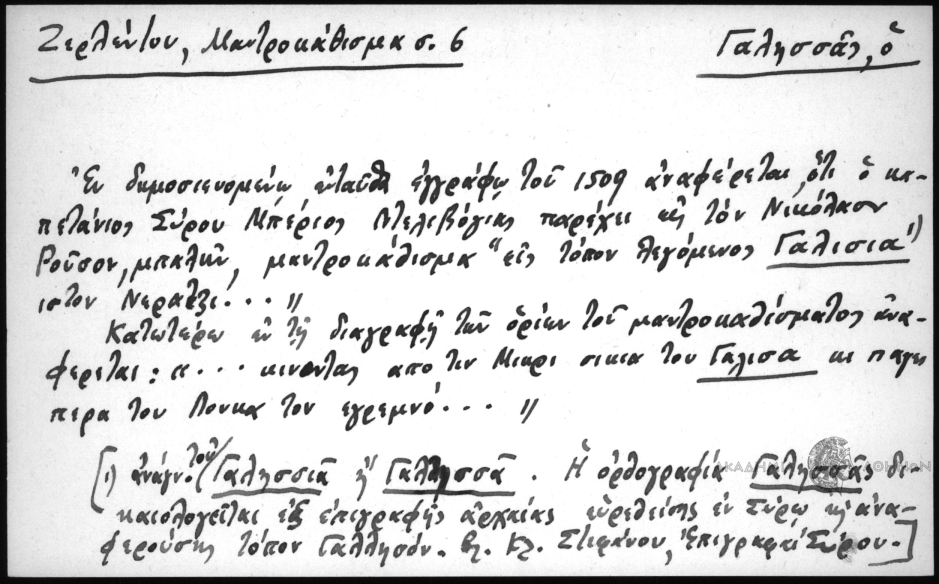 Ζερλέντου, Μαντροκάθισμα σ. 6
Γαλησσᾶς, ὁ
Ἐν δημοσιευομένῳ ἐνταῦθα ἐγγράφῳ τοῦ 1509 ἀναφέρεται, ὅτι ὁ κα-
πετάνιος Σύρου Μπέριος Ντελιβόγιας παρέχει εἰς τὸν Νικόλαον
Ροῦσον, μπαλῆν, μαντροκάθισμα "εἰς τόπον λεγόμενος Γαλισιά 1)
ιστον Νερατζι... "
Κατωτέρω ἐν τῇ διαγραφῇ τῶν ὁρίων τοῦ μαντροκαθίσματος ἀνα-
φέρεται: "... κινοντας απο την Μικρι σικια του Γαλισα κε παγει
περα του Πουκα τον εγρεμνό... "
[1) ἀνάγν. τοῦ Γαλησσιᾶ ἢ Γαλλησσᾶ. Ἡ ὀρθογραφία Γαλησσᾶς δι-
καιολογεῖται ἐξ ἐπιγραφῆς ἀρχαίας εὑρεθείσης ἐν Σύρῳ κ ἀνα-
φερούσης τόπον Γαλλησόν. βλ. Κλ. Στεφάνου, Ἐπιγραφαὶ Σύρου.]